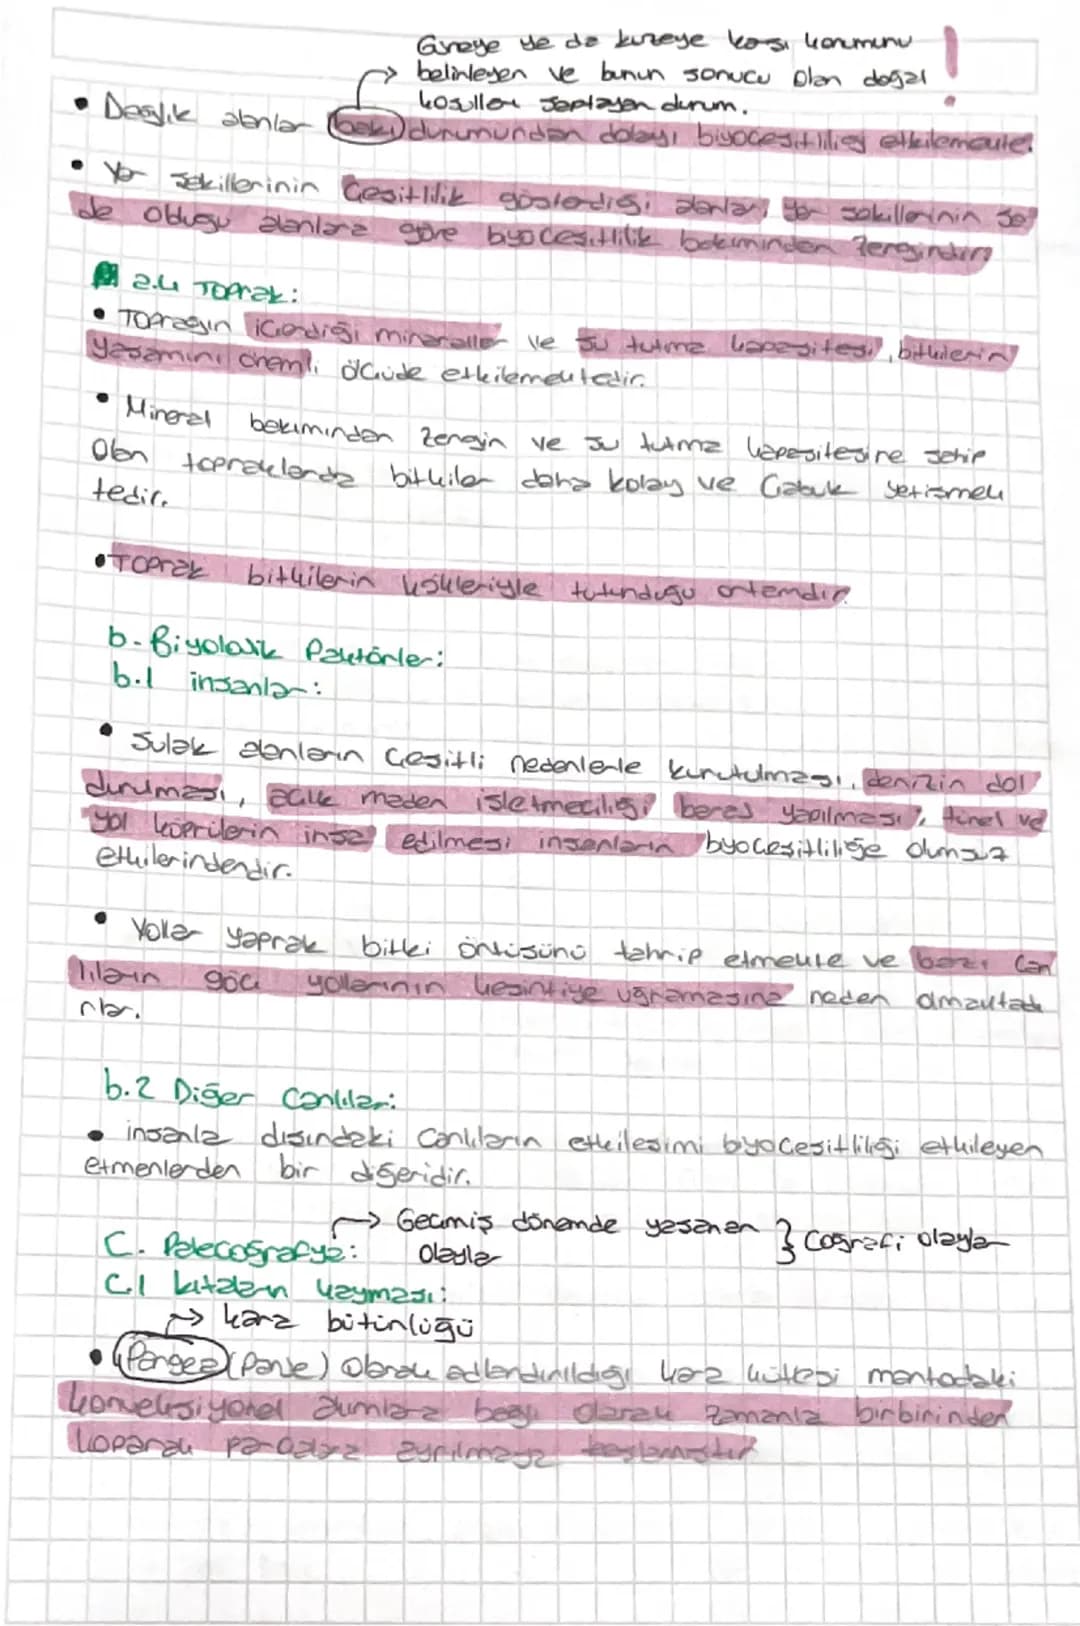 Güneye ye da kuzeye karşı konumunu
belirleyen ve bunun sonucu olan doğal
koşulları saptayan durum. !
• Dağlık alanlar bakı durumundan dolayı biyoçeşitliliği etkilemekte.
• Yer şekillerinin çeşitlilik gösterdiği alanlar, yer şekillerinin sa
de olduğu alanlara göre byoçeşitlilik bakımından zengindir.
a.4 Toprak:
• Toprağın içerdiği mineraller ve su tutma kapasitesi, bitkilerin
yaşamını önemli ölçüde etkilemektedir.
• Mineral bakımından zengin ve su tutma kapasitesine sahip
olan topraklarda bitkiler daha kolay ve çabuk yetişmek
tedir.
• Toprak bitkilerin kökleriyle tutunduğu ortamdır.
b. Biyolojik Faktörler:
b.1 insanlar:
• Sulak alanların çeşitli nedenlerle kurutulması, denizin dol
durulması, açık maden işletmeciliği, baraj yapılması, tünel ve
yol köprülerin inşa edilmesi insanların byoçeşitliliğe olumsuz
etkilerindendir.
• Yollar yaprak bitki örtüsünü tahrip etmekte ve bazı can
lıların göç yollarının kesintiye uğramasına neden olmaktadı
rlar.
b.2 Diğer Canlılar:
• insanla dışındaki canlıların etkileşimi byoçeşitliliği etkileyen
etmenlerden bir diğeridir.
→ Geçmiş dönemde yaşanan } Coğrafi olaylar
C. Palecoğrafya: olaylar
C.1 kıtaların kayması:
→ kara bütünlüğü
• (Pangea) (Pante) olarak adlandırıldığı kara kütlesi mantodaki
konveksiyonel akımlara bağlı olarak zamanla birbirinden
koparak parçalara ayrılmaya başlamıştır